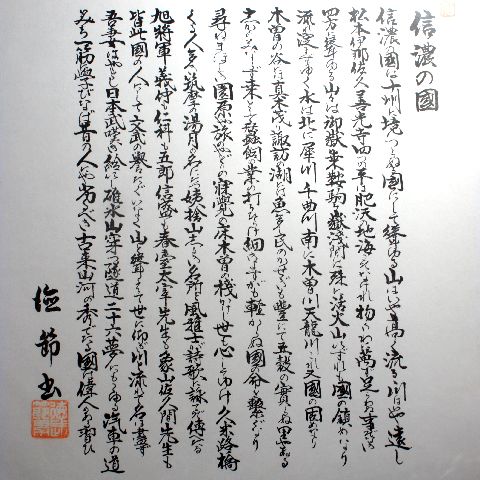 信濃の國
信濃國は十州に境つらぬる國にして聳ゆる山はいや高く流るる川はいや遠し
松本伊那佐久善光寺四つの平は肥沃の地海こそなけれ物さわに萬ず足らわぬ事ぞなき
四方に聳ゆる山々は御嶽乗鞍駒ヶ嶽浅間は殊に活火山いずれも國の鎮めなり
流れ淀まずゆく水は北に犀川千曲川南に木曽川天龍川これまた國の固めなり
木曽の谷には真木茂り諏訪の湖には魚多し民のかせぎも豊かにて五穀の實らぬ里やある
しかのみならず桑とりて蠶飼の業の打ちひらけ細きよすがも軽からぬ國の命を繋ぐなり
尋ねまほしき園原や旅のやどりの寝覚の床木曽の桟かけし世も心してゆけ久米路橋
くる人多き筑摩の湯月の名にたつ姨捨山しるき名所と風雅士が詩歌に詠てぞ傳へたる
旭将軍義仲も仁科の五郎信盛も春臺太宰先生も象山佐久間先生も
皆此國の人にして文武の誉たぐいなく山と聳えて世に仰ぎ川と流れて名は尽ず
吾妻はやとし日本武嘆き給いし碓氷山穿つ隧道二十六夢にもこゆる汽車の道
みち一筋に学びなば昔の人にや劣るべき古来山河の秀でたる國は偉人のある習ひ
節書